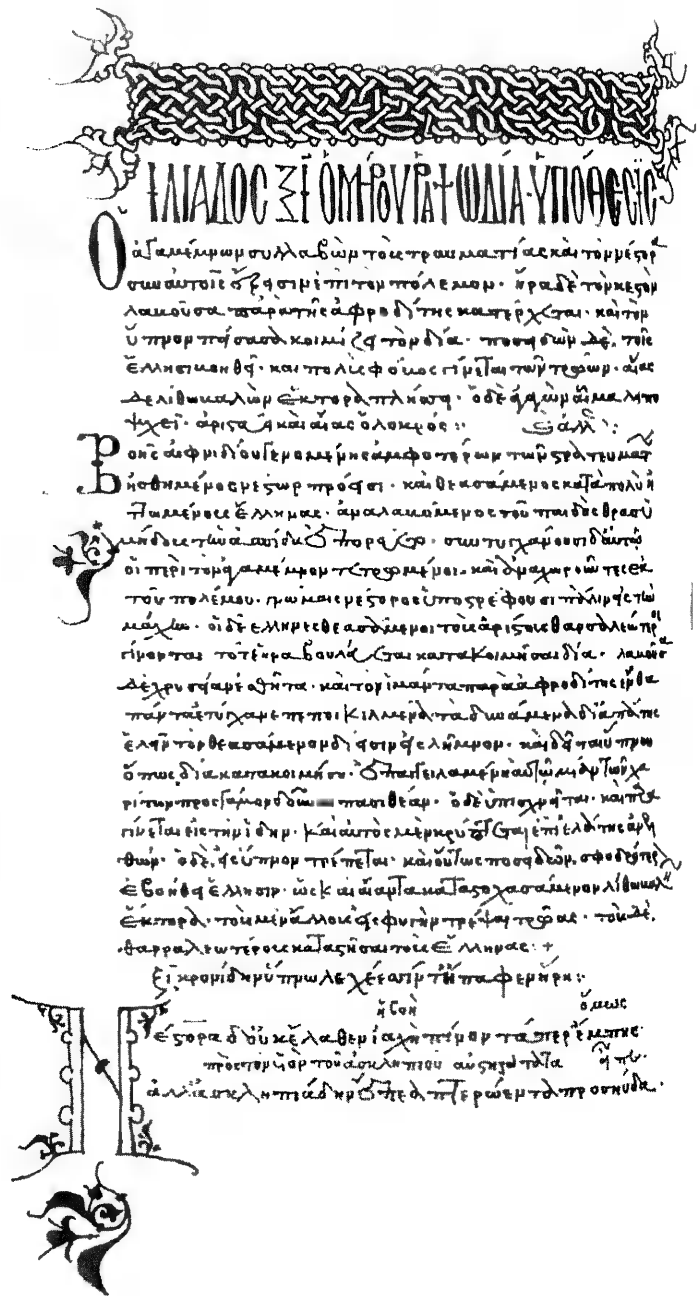 ἸΛΙΑΔΟΣ Ξῖ ὉΜΗΡΟΥ ΡΑΨΩΔΙΑ· ὙΠΟΘΕΣΙΣ
Ὁ ἀγαμέμνων συλλαβὼν τοὺς τραυματίας καὶ τὸν νέστορα
σὺν αὐτοῖς ἔξεισιν ἐπὶ τὸν πόλεμον· ἥρα δὲ τὸν κεστὸν
λαβοῦσα παρὰ τῆς ἀφροδίτης κατέρχεται· καὶ τὸν
ὕπνον πείσασα κοιμίζει τὸν δία· ποσειδῶν δὲ, τοῖς
ἕλλησι βοηθεῖ· καὶ πολὺς φόνος γίνεται τῶν τρώων· αἴας
δὲ λίθω βαλὼν ἕκτορα πλήττει· ὁ δὲ αἷμα λιπο
ψυχεῖ· ἀριστεύει καὶ αἴας ὁ λοκρός :·
Βοῆς αἰφνιδίου γενομένης ἀμφοτέρων τῶν στρατευμάτων
αἰσθημένος νέστωρ πρόεισι· καὶ θεασάμενος κατὰ πολὺ ἡ
ττωμένους ἕλληνας· ἀναλαβόμενος τοῦ παιδὸς θρασυ
μήδους τὴν ἀσπίδα ἐπορεύετο· συντυγχάνουσι δ' αὐτῶ
οἱ περὶ τὸν ἀγαμέμνονα τετρωμένοι· καὶ ἀναχωροῦντες ἐκ
τοῦ πολέμου· γνώμαις νέστορος ὑποστρέφουσι πάλιν εἰς τὴν
μάχην· οἱ δὲ ἕλληνες θεασάμενοι τοὺς ἀρίστους θαρσαλεώτεροι
γίνονται τότε ἥρα βουλεύεται κατακοιμῆσαι δία· λαβοῦσα
δὲ καὶ τὸν ἱμάντα παρὰ ἀφροδίτης ἔνθα
πάντα ἐτύγχανε πεποικιλμένα τὰ δυνάμενα δι ἀπάτης
ἑλεῖν τὸν θεασάμενον δίεισιν εἰς λῆμνον· καὶ δεῖται ὕπνου
ὅπως δία κατακοιμήση· ἐπαγγειλαμένη αὐτῶ μίαν τῶν χα
ρίτων πρὸς γάμον πασιθέαν· ὁ δὲ ὑπισχνεῖται· καὶ
γίνεται εἰς τὴν ἴδην· καὶ αὐτὸς μὲν κρύπτεται ἐπὶ ἐλάτης
ὁ δὲ, εἰς ὕπνον τρέπεται· καὶ οὕτως ποσειδῶν, σφοδρότερον
ἐβοήθει ἕλλησιν· ὡς καὶ αἴαντα καταστοχασάμενον λίθω βαλεῖν
ἕκτορα· τοὺς μὲν ἄλλους εἰς φυγὴν τρέψαι τρῶας· τοὺς δὲ,
θαρραλεωτέρους καταστῆσαι τοὺς ἕλληνας: +
ξῖ κρονίδην ὕπνω
ἡ βοὴ ὅμως
Νέστορα δ' οὐκ ἔλαθεν ἰαχὴ πίνοντά περ ἔμπης·
πρὸς τὸν υἱὸν τοῦ ἀσκληπιοῦ
ἀλλ' ἀσκληπιάδην ἔπεα πτερόεντα προσηύδα·